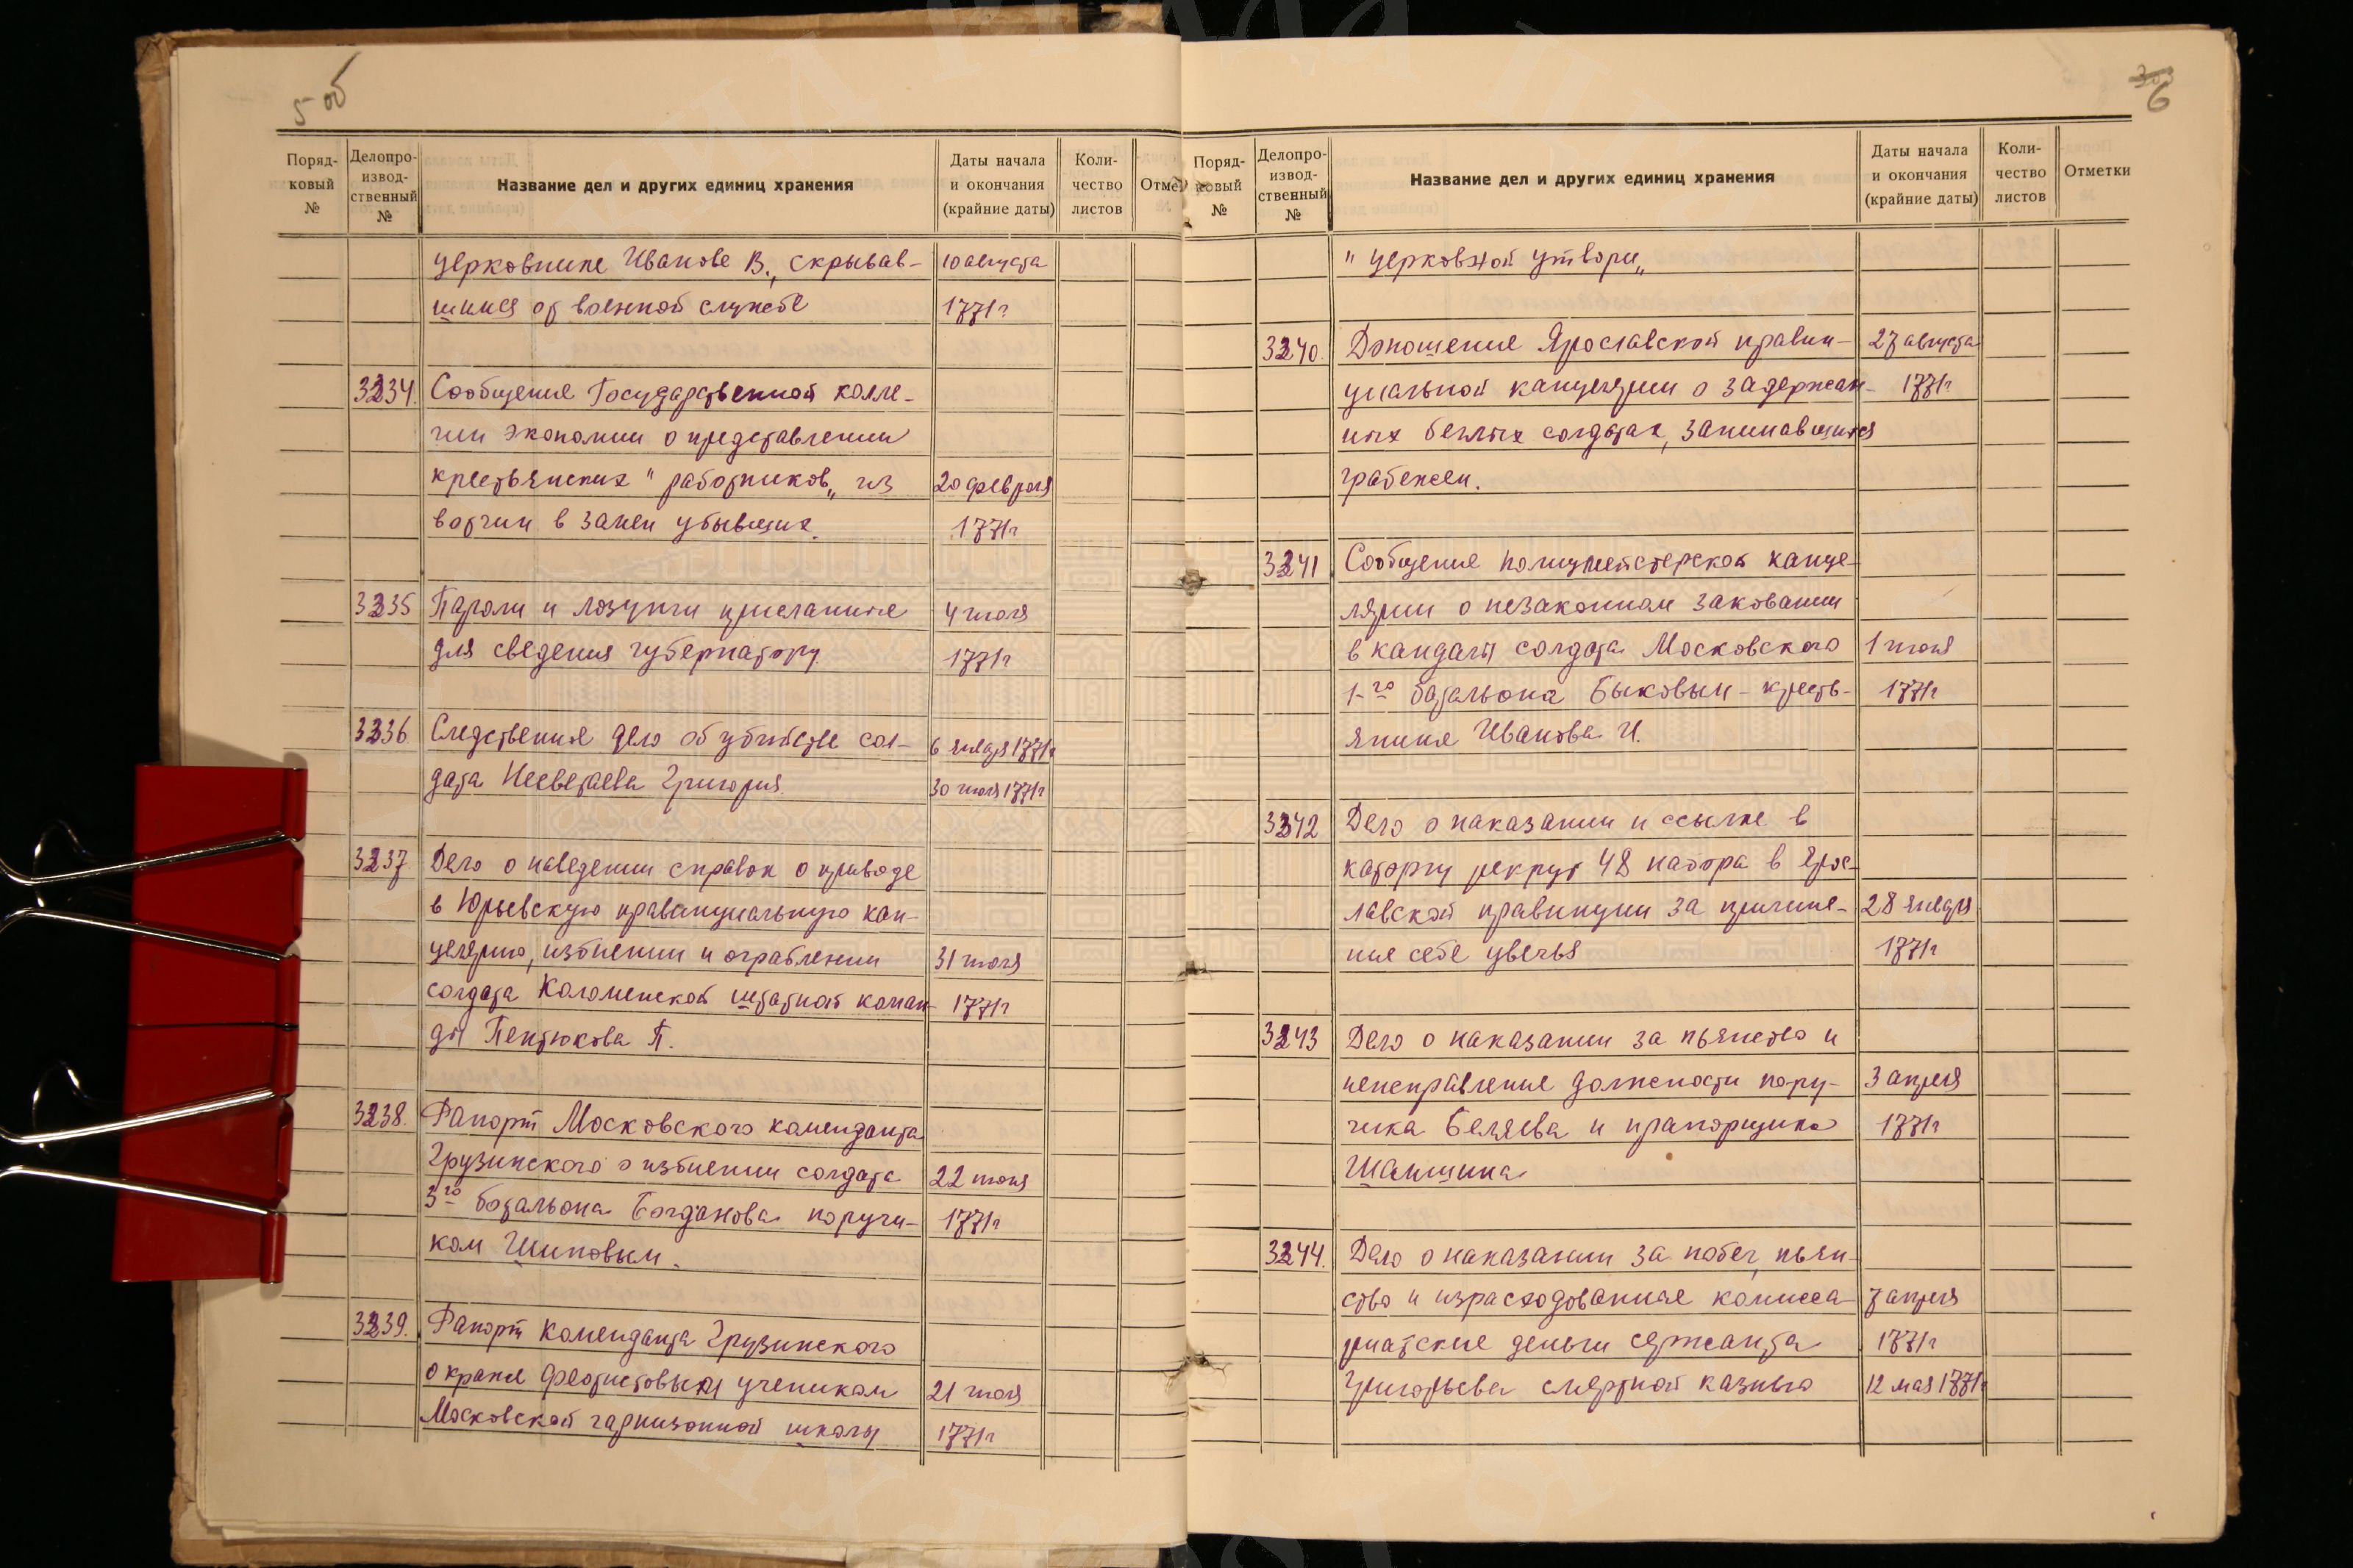 5 об
Поряд-
ковый
№
Делопро-
извод-
ственный
№
Название дел и других единиц хранения
Даты начала
и окончания
(крайние даты)
Коли-
чество
листов
Отме
церковнике Иванове В., скрывав- 10 августа
шимся от военной службе 1771г
3234. Сообщение Государственной колле-
гии экономии о представлении
крестьянских "работников„ из 20 февраля
вотчин в замен убывших. 1771г
3235 Пароли и лозунги присланные 4 июля
для сведения губернатору. 1771г
3236 Следственное дело об убийстве сол- 6 января 1771г
дата Несветаева Григория. 30 июля 1771г
3237 Дело о наведении справок о приводе
в Юрьевскую правинциальную кан-
целярию, избиении и ограблении 31 июля
солдата Коломенской штатной коман- 1771г
ды Пентюкова П.
3238. Рапорт Московского коменданта
Грузинского о избиении солдата 22 июня
3го батальона Богданова поручи- 1771г
ком Шиповым.
3239. Рапорт коменданта Грузинского
о краже Феоктистовым учеником 21 июля
Московской гарнизонной школы 1771г
6
Поряд-
ковый
№
Делопро-
извод-
ственный
№
Название дел и других единиц хранения
Даты начала
и окончания
(крайние даты)
Коли-
чество
листов
Отметки
"церковной утвори„
3240. Доношение Ярославской правин- 27 августа
циальной канцелярии о задержан- 1771г
ных беглых солдатах, занимавшихся
грабежем.
3241 Сообщение полицмейстерской канце-
лярии о незаконном заковании
в кандалы солдата Московского 1 июля
1-го батальона Быковым - кресть- 1771г
янина Иванова И.
3242 Дело о наказании и ссылке в
каторгу рекрут 48 набора в Яро-
славской правинции за причине- 28 января
ние себе увечья 1771г
3243 Дело о наказании за пьянство и
неисправление должности пору- 3 апреля
чика Беляева и прапорщика 1771г
Шаншина
3244. Дело о наказании за побег, пьян-
ство и израсходование комисса- 7 апреля
риатские деньги сержанта 1771г
Григорьева смертной казнью 12 мая 1771г